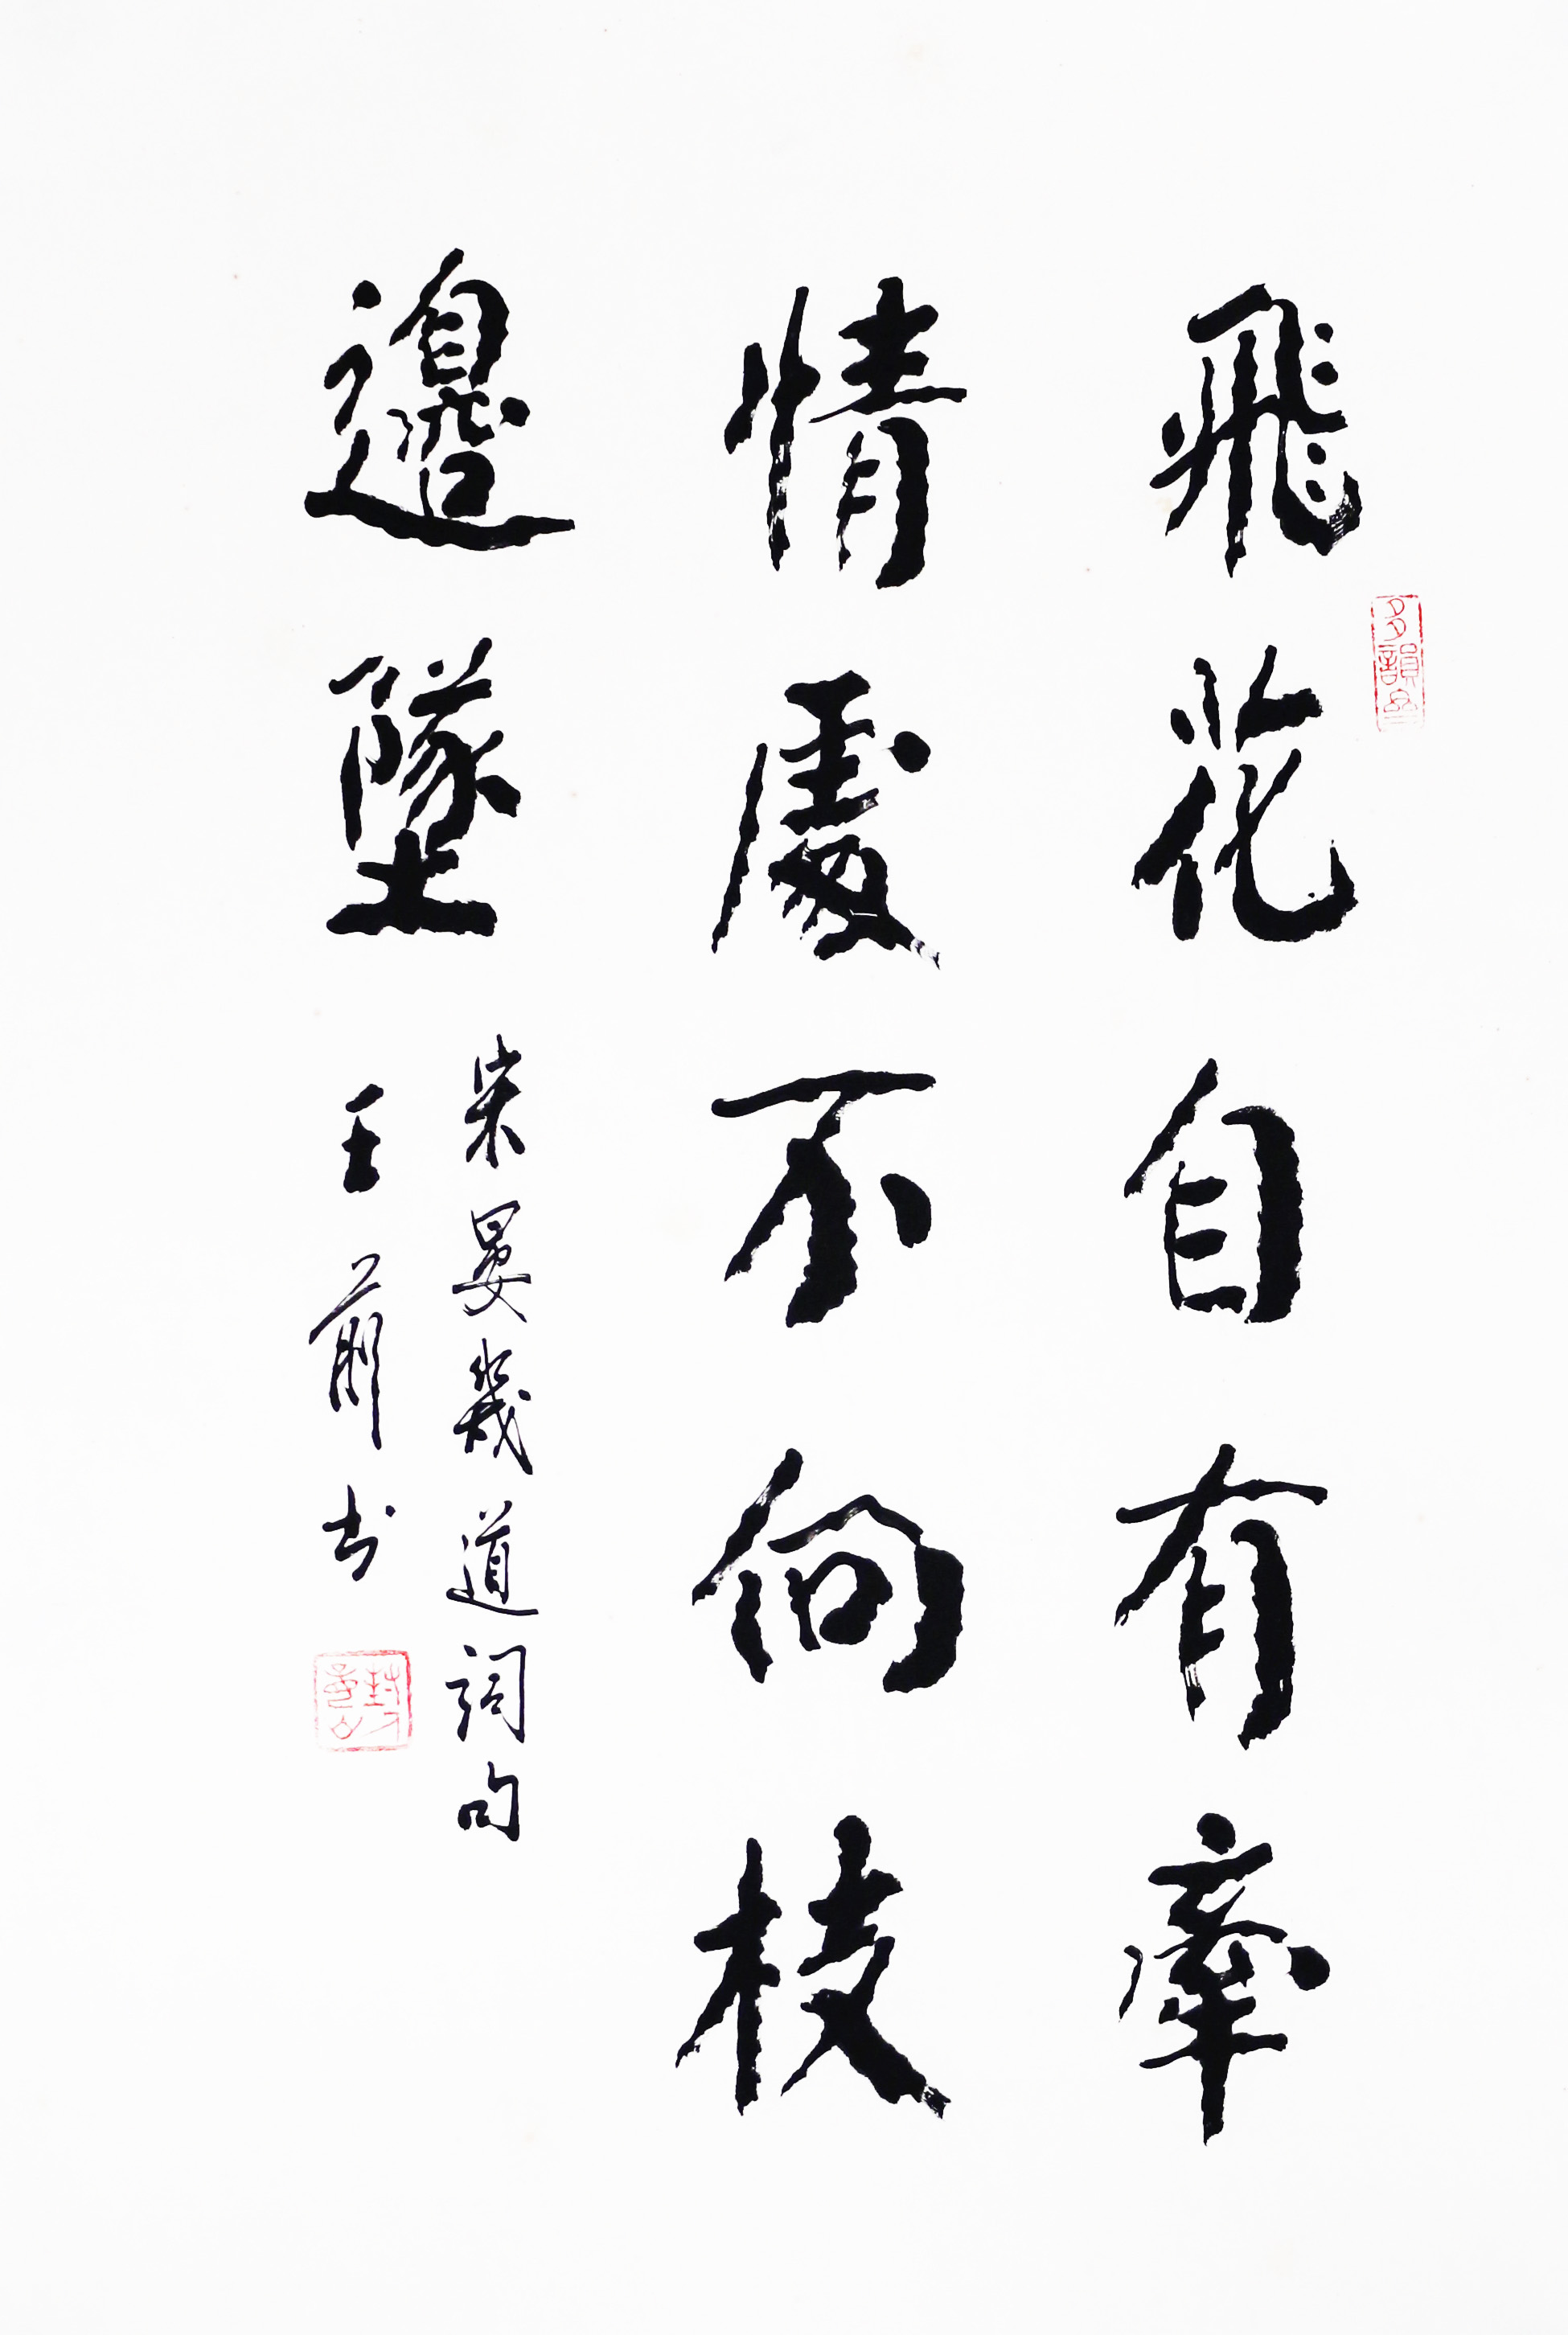 飛花自有牽
情處不向枝
邊墜
宋晏幾道词句
王前书